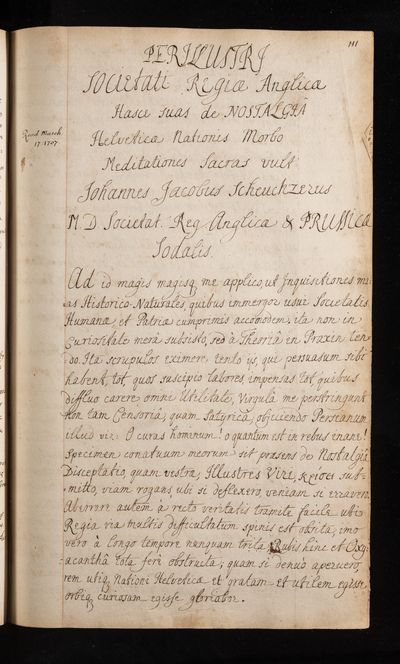 181
PERILLUSTRI
Societati Regiæ Anglica
Hasce suas de NOSTALGIÂ
Helvetica Nationis Morbo
Meditationes Sacras vult
Johannes Jacobus Scheuchzerus
M.D Societat. Reg Anglica & PRUSSICA
Sodalis.
Read March
17. 1707
Ad id magis magisq me applico, ut Inquisitiones me
as Historico-Naturales, quibus immergor usui Societatis
Humanæ, et Patriæ cumprimis accomodem, ita non in
Curiositate merâ subsisto, sed à Theoriâ in Praxin ten
do. Ita scrupulos eximere tento iis, qui persuasum sibi
habent, tot, quos suscipio labores, impensas tot quibus
diffluo carere omni Utilitate, Virgulâ me perstringunt
non tam Censoriâ, quam Satyricâ, objiciendo Persianum
illud viz. O curas hominum! o quantum est in rebus inane!
Specimen conatuum meorum sit præsens de Nostalgiâ
Disceptatio, quam vestræ, Illustres Viri, κρίσει sub-
mitto, viam rogans ubi si deflexero, veniam si erravero.
Aberrare autem à recto veritatis tramite facile ubi
Regia via multis difficultatum spinis est obsita, imo
vero à longo tempore nunquam trita, Rubis hinc et Oxy
acanthâ tota ferè obstruita; quam si denuò aperuero,
rem utiq Nationi Helvetica et gratam et utilem egisse,
orbiq curiosam egisse gloriabor.